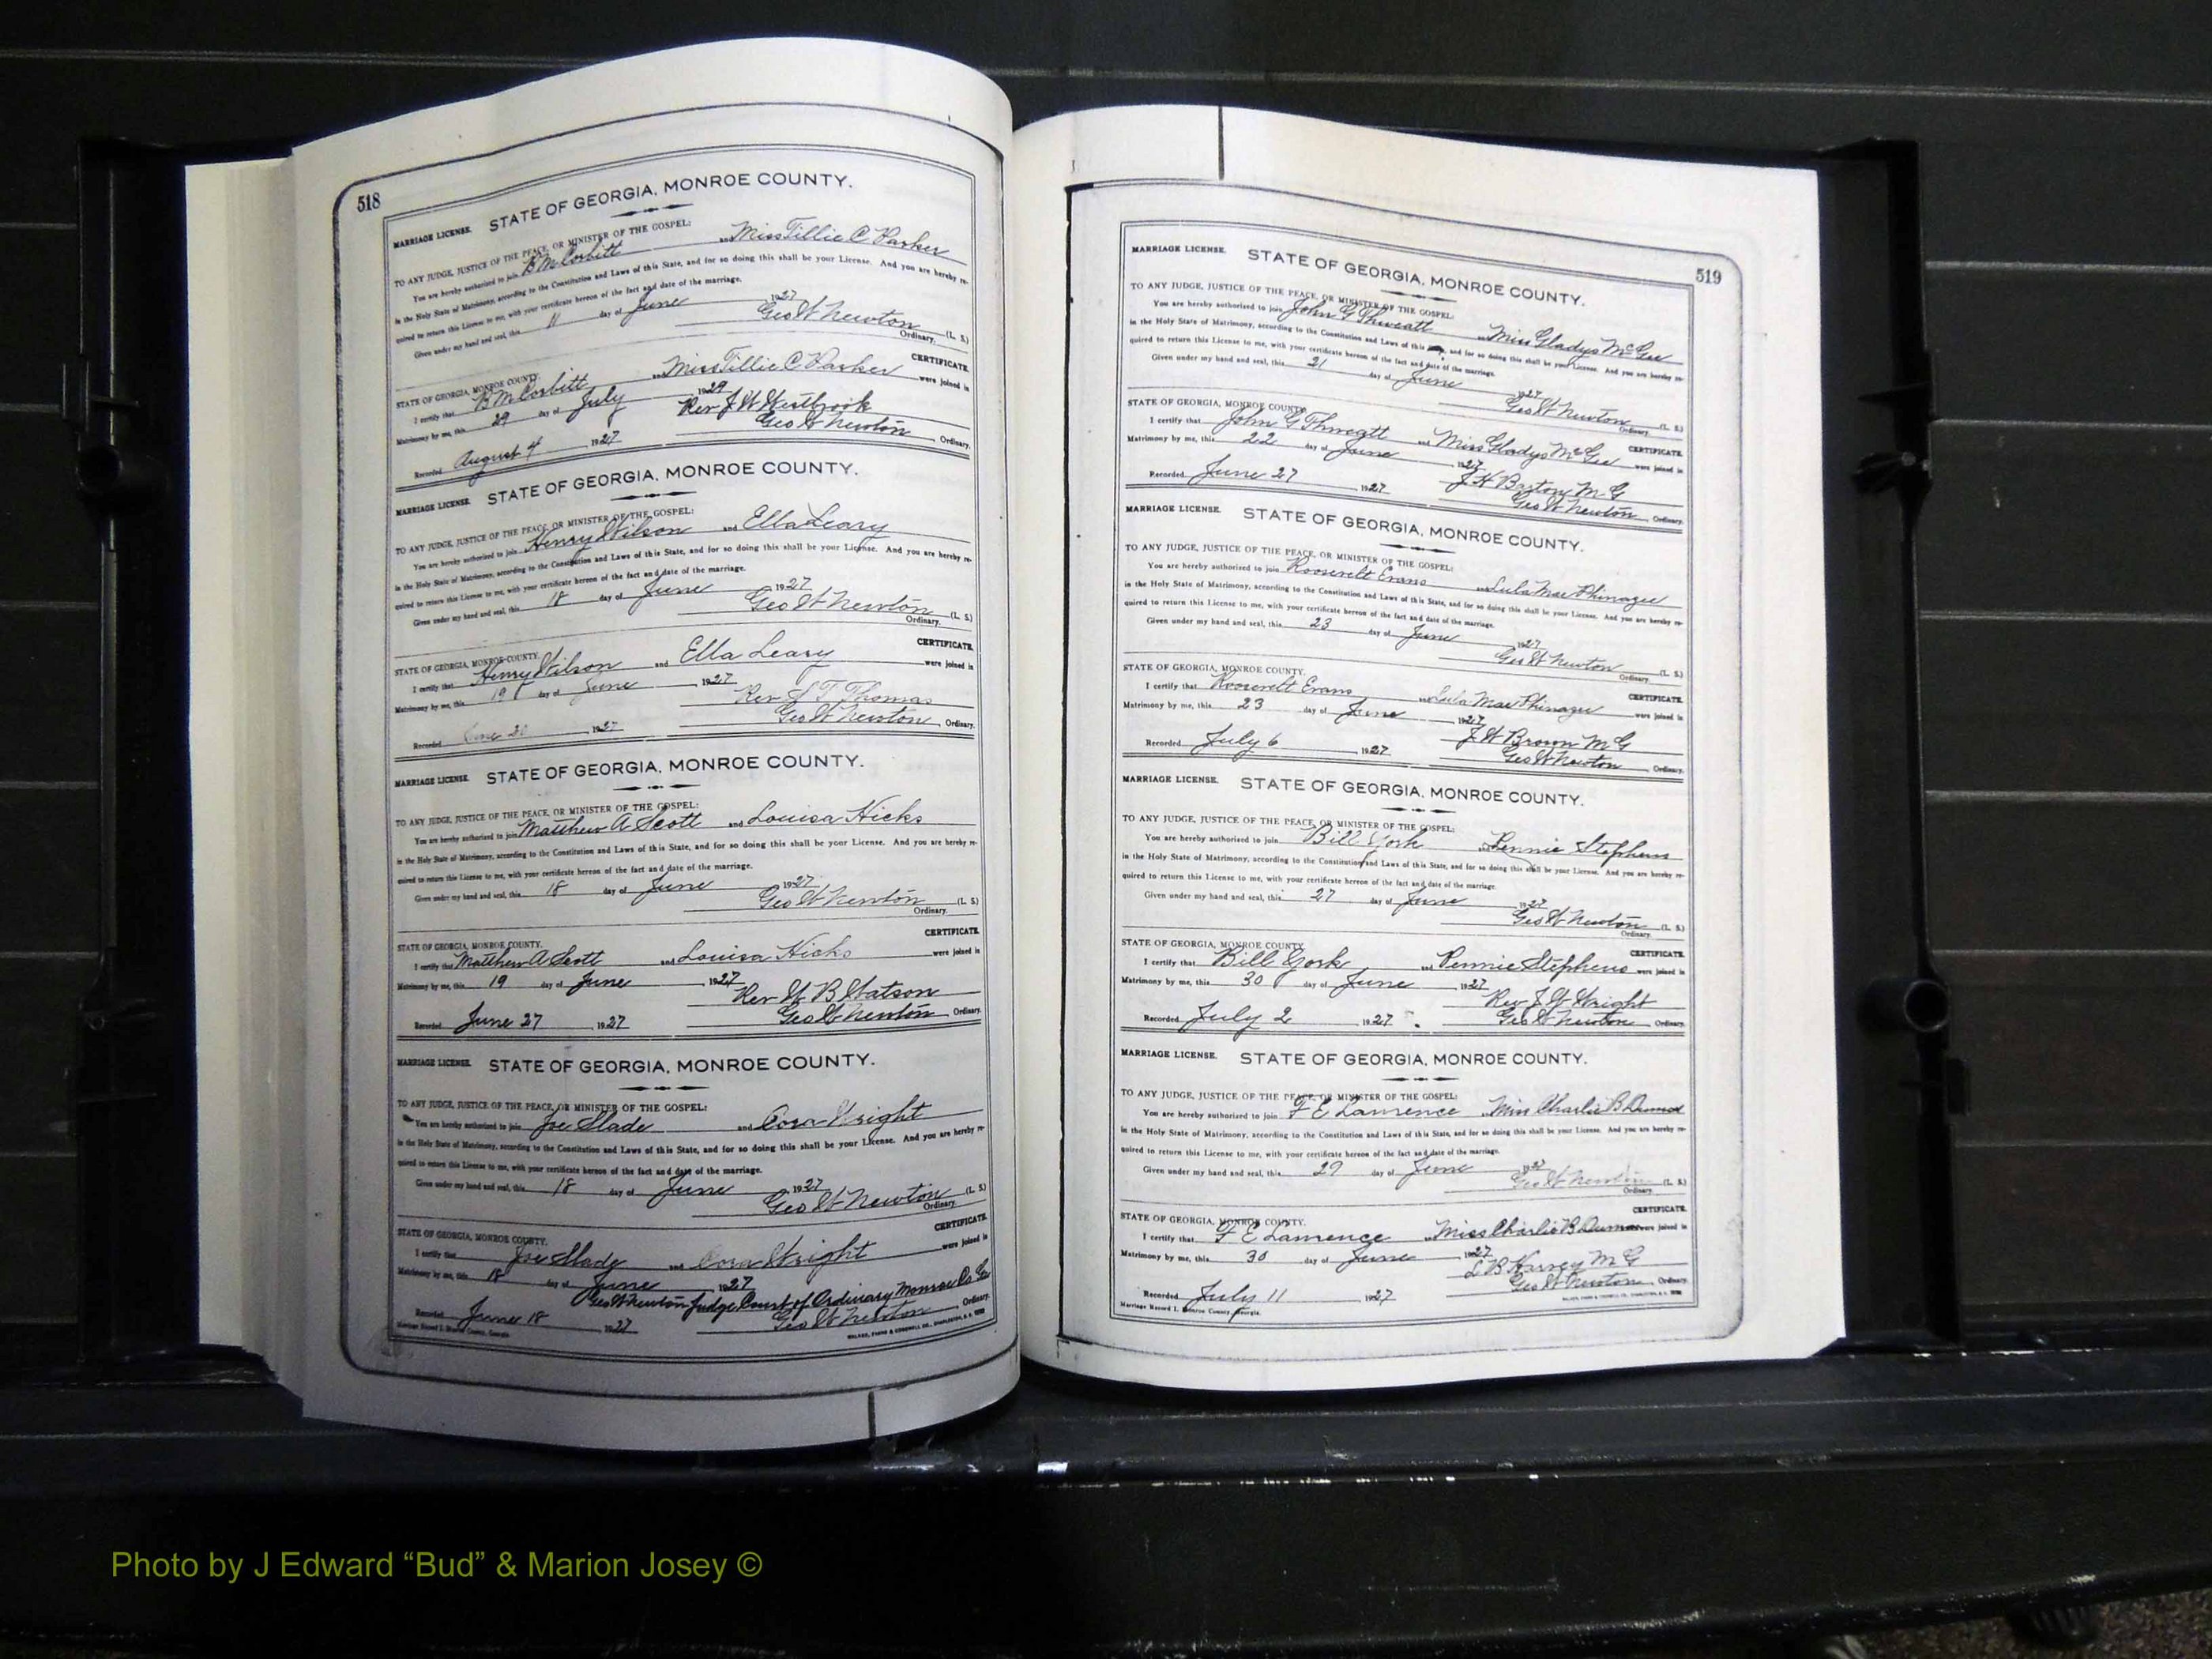 518
STATE OF GEORGIA, MONROE COUNTY.
MARRIAGE LICENSE.
TO ANY JUDGE, JUSTICE OF THE PEACE, OR MINISTER OF THE GOSPEL:
You are hereby authorized to join B M Corbitt and Miss Tillie C Parker
in the Holy State of Matrimony, according to the Constitution and Laws of this State, and for so doing this shall be your License. And you are hereby re-
quired to return this License to me, with your certificate hereon of the fact and date of the marriage.
Given under my hand and seal, this 11 day of June 1927
Geo W Newton (L. S.)
Ordinary.
STATE OF GEORGIA, MONROE COUNTY. CERTIFICATE.
I certify that B M Corbitt and Miss Tillie C Parker were joined in
Matrimony by me, this 29 day of July 1929
Rev J W Westbrook
Recorded August 4 1927 Geo W Newton, Ordinary.
MARRIAGE LICENSE. STATE OF GEORGIA, MONROE COUNTY.
TO ANY JUDGE, JUSTICE OF THE PEACE, OR MINISTER OF THE GOSPEL:
You are hereby authorized to join Henry Wilson and Ella Leary
in the Holy State of Matrimony, according to the Constitution and Laws of this State, and for so doing this shall be your License. And you are hereby re-
quired to return this License to me, with your certificate hereon of the fact and date of the marriage.
Given under my hand and seal, this 18 day of June 1927
Geo W Newton (L. S.)
Ordinary.
STATE OF GEORGIA, MONROE COUNTY. CERTIFICATE.
I certify that Henry Wilson and Ella Leary were joined in
Matrimony by me, this 19 day of June 1927
Rev S T Thomas
Recorded June 20 1927 Geo W Newton, Ordinary.
MARRIAGE LICENSE. STATE OF GEORGIA, MONROE COUNTY.
TO ANY JUDGE, JUSTICE OF THE PEACE, OR MINISTER OF THE GOSPEL:
You are hereby authorized to join Matthew A Scott and Louisa Hicks
in the Holy State of Matrimony, according to the Constitution and Laws of this State, and for so doing this shall be your License. And you are hereby re-
quired to return this License to me, with your certificate hereon of the fact and date of the marriage.
Given under my hand and seal, this 18 day of June 1927
Geo W Newton (L. S.)
Ordinary.
STATE OF GEORGIA, MONROE COUNTY. CERTIFICATE.
I certify that Matthew A Scott and Louisa Hicks were joined in
Matrimony by me, this 19 day of June 1927
Rev W B Watson
Recorded June 27 1927 Geo W Newton Ordinary.
MARRIAGE LICENSE. STATE OF GEORGIA, MONROE COUNTY.
TO ANY JUDGE, JUSTICE OF THE PEACE, OR MINISTER OF THE GOSPEL:
You are hereby authorized to join Joe Slade and Cora Wright
in the Holy State of Matrimony, according to the Constitution and Laws of this State, and for so doing this shall be your License. And you are hereby re-
quired to return this License to me, with your certificate hereon of the fact and date of the marriage.
Given under my hand and seal, this 18 day of June 1927
Geo W Newton (L. S.)
Ordinary.
STATE OF GEORGIA, MONROE COUNTY. CERTIFICATE.
I certify that Joe Slade and Cora Wright were joined in
Matrimony by me, this 18 day of June 1927
Geo W Newton Judge Court of Ordinary Monroe Co Ga
Recorded June 18 1927 Geo W Newton Ordinary.
Marriage Record I. Monroe County, Georgia. WALKER, EVANS & COGSWELL CO., CHARLESTON, S. C.
519
MARRIAGE LICENSE. STATE OF GEORGIA, MONROE COUNTY.
TO ANY JUDGE, JUSTICE OF THE PEACE, OR MINISTER OF THE GOSPEL:
You are hereby authorized to join John G Thweatt Miss Gladys McGee
in the Holy State of Matrimony, according to the Constitution and Laws of this State, and for so doing this shall be your License. And you are hereby re-
quired to return this License to me, with your certificate hereon of the fact and date of the marriage.
Given under my hand and seal, this 21 day of June 1927
Geo W Newton (L. S.)
Ordinary.
STATE OF GEORGIA, MONROE COUNTY. CERTIFICATE.
I certify that John G Thweatt and Miss Gladys McGee were joined in
Matrimony by me, this 22 day of June 1927
J H Barton M G
Recorded June 27 1927 Geo W Newton, Ordinary.
MARRIAGE LICENSE. STATE OF GEORGIA, MONROE COUNTY.
TO ANY JUDGE, JUSTICE OF THE PEACE, OR MINISTER OF THE GOSPEL:
You are hereby authorized to join Roosevelt Evans and Lula Mae Phinazee
in the Holy State of Matrimony, according to the Constitution and Laws of this State, and for so doing this shall be your License. And you are hereby re-
quired to return this License to me, with your certificate hereon of the fact and date of the marriage.
Given under my hand and seal, this 23 day of June 1927
Geo W Newton (L. S.)
Ordinary.
STATE OF GEORGIA, MONROE COUNTY. CERTIFICATE.
I certify that Roosevelt Evans and Lula Mae Phinazee were joined in
Matrimony by me, this 23 day of June 1927
J W Brown M G
Recorded July 6 1927 Geo W Newton, Ordinary.
MARRIAGE LICENSE. STATE OF GEORGIA, MONROE COUNTY.
TO ANY JUDGE, JUSTICE OF THE PEACE, OR MINISTER OF THE GOSPEL:
You are hereby authorized to join Bill York and Pennie Stephens
in the Holy State of Matrimony, according to the Constitution and Laws of this State, and for so doing this shall be your License. And you are hereby re-
quired to return this License to me, with your certificate hereon of the fact and date of the marriage.
Given under my hand and seal, this 27 day of June 1927
Geo W Newton (L. S.)
Ordinary.
STATE OF GEORGIA, MONROE COUNTY. CERTIFICATE.
I certify that Bill York and Pennie Stephens were joined in
Matrimony by me, this 30 day of June 1927
Rev J W Wright
Recorded July 2 1927 Geo W Newton Ordinary.
MARRIAGE LICENSE. STATE OF GEORGIA, MONROE COUNTY.
TO ANY JUDGE, JUSTICE OF THE PEACE, OR MINISTER OF THE GOSPEL:
You are hereby authorized to join F E Lawrence Miss Charlie B
in the Holy State of Matrimony, according to the Constitution and Laws of this State, and for so doing this shall be your License. And you are hereby re-
quired to return this License to me, with your certificate hereon of the fact and date of the marriage.
Given under my hand and seal, this 29 day of June 1927
Geo W Newton (L. S.)
Ordinary.
STATE OF GEORGIA, MONROE COUNTY. CERTIFICATE.
I certify that F E Lawrence Miss Charlie B were joined in
Matrimony by me, this 30 day of June 1927
L B Harvey M G
Recorded July 11 1927 Geo W Newton, Ordinary.
Marriage Record I. Monroe County, Georgia. WALKER, EVANS & COGSWELL CO., CHARLESTON, S. C.
Photo by J Edward “Bud” & Marion Josey ©